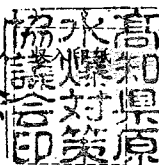 高知県原
水爆対策
協議会印